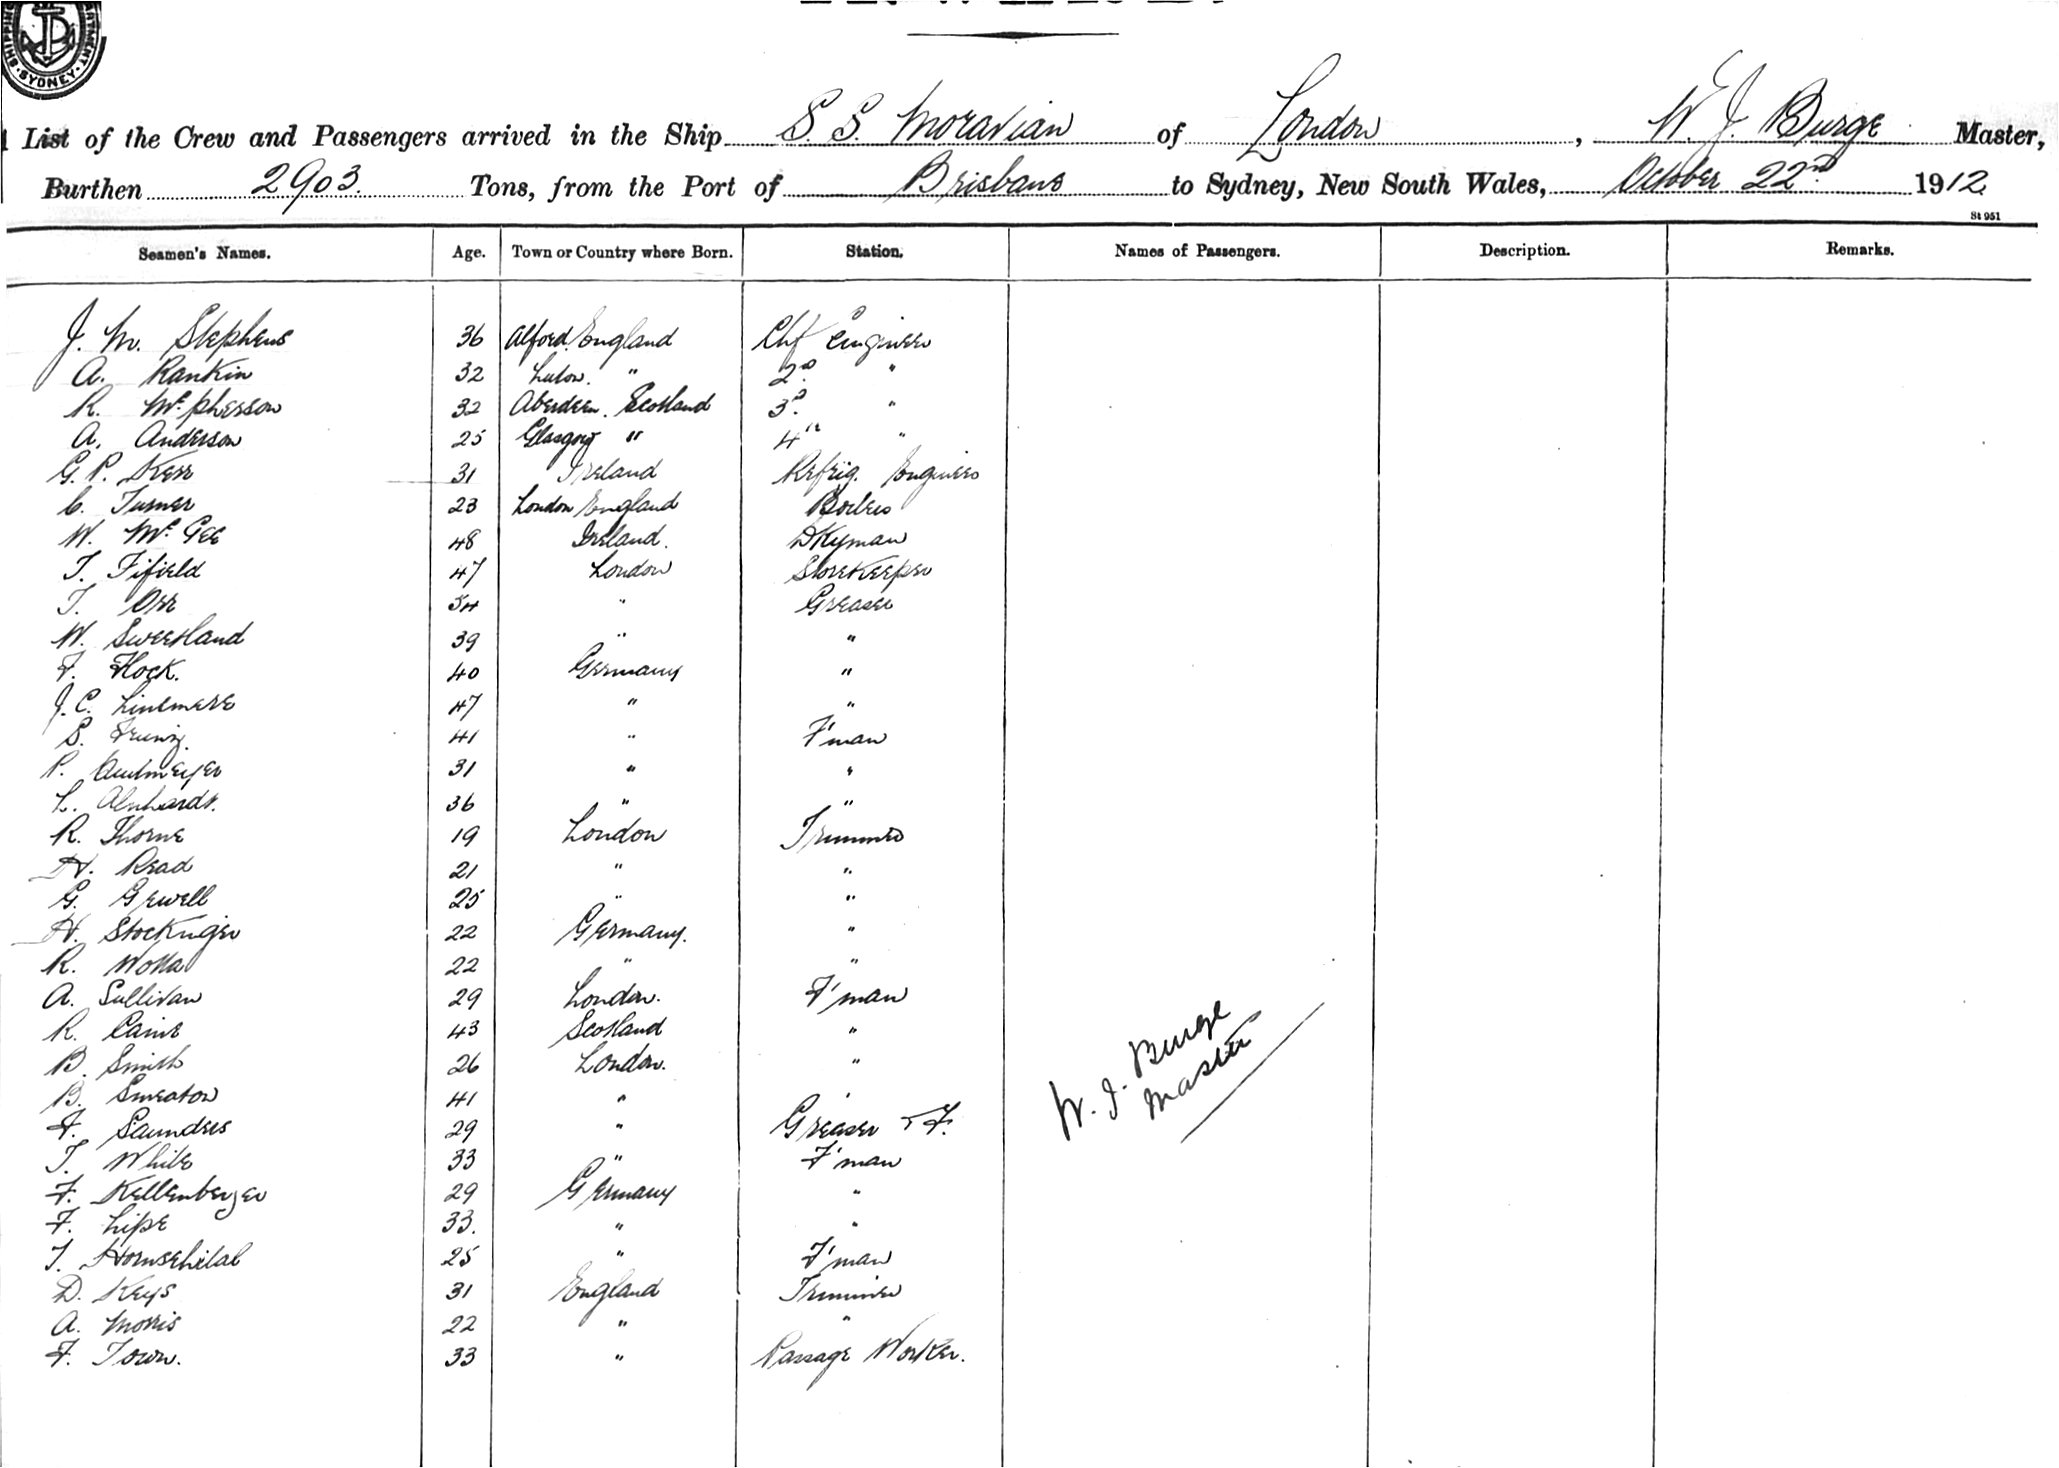 SYDNEY
List of the Crew and Passengers arrived in the Ship S. S. Moravian of London, W. J. Burge Master,
Burthen 2903. Tons, from the Port of Brisbane to Sydney, New South Wales, October 22nd 1912.
St 951
Seamen's Names. Age. Town or Country where Born. Station. Names of Passengers. Description. Remarks.
J. M. Stephens 36 Alford. England Chf Engineer
A. Rankin 32 Luton. " 2nd "
R. McPherson 32 Aberdeen. Scotland 3rd "
A. Anderson 25 Glasgow " 4th "
G. P. Kerr 31 Ireland Refrig. Engineer
C. Turner 23 London England
W. McGee 48 Ireland. DKyman
T. Fifield 47 London StoreKeeper
T. Orr 54 " Greaser
W. Sweetland 39 " "
F. Flock. 40 Germany "
J. C. Linemere 47 " "
S. 41 " F'man
P. 31 " "
L. 36 " "
R. Thorne 19 London Trimmer
H. Read 21 " "
G. Grewell 25 " "
H. Stockinger 22 Germany. "
R. Wotta 22 " "
A. Sullivan 29 London. F'man
R. Caine 43 Scotland "
B. Smith 26 London. "
B. Smeaton 41 " "
F. Saunders 29 " Greaser & F.
T. White 33 " F'man
F. Kellenberger 29 Germany "
F. Lipe 33. " "
T. 25 " F'man
D. Keys 31 England Trimmer
A. Morris 22 " "
F. Town. 33 " Passage Worker.
W. J. Burge
Master